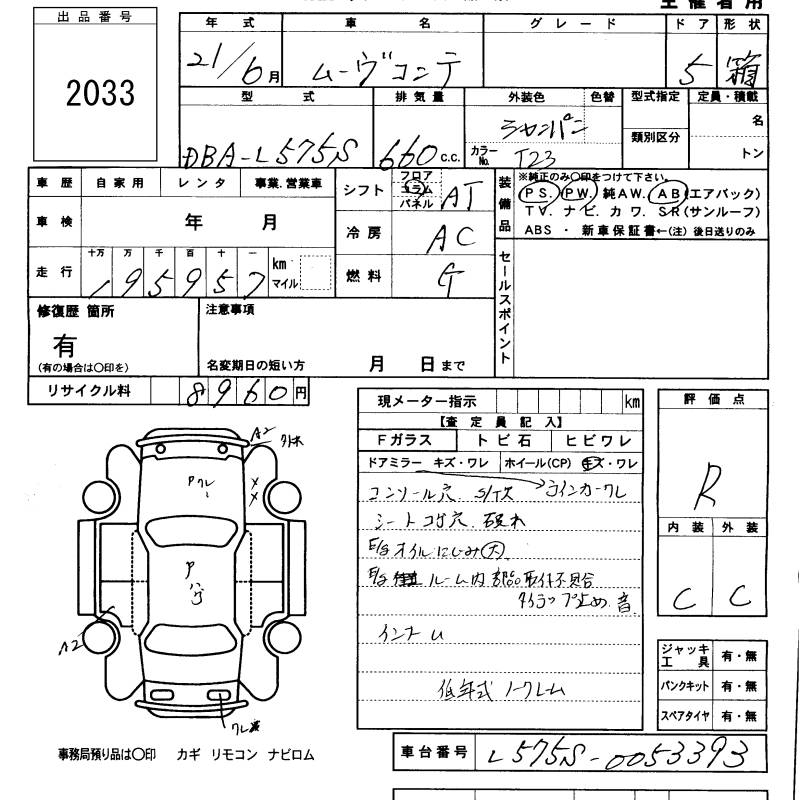 主催者用
出品番号
2033
年式 車名 グレード ドア 形状
21/6月 ムーヴコンテ 5 箱
型式 排気量 外装色 色替 型式指定 定員・積載
DBA-L575S 660 c.c. シャンパン
カラーNo. T23 類別区分 名
トン
車歴 自家用 レンタ 事業.営業車
車検 年 月
走行 十万 万 千 百 十 一 km マイル
195957
シフト フロア コラム パネル AT
冷房 AC
燃料 G
装備品
※純正のみ〇印をつけて下さい。
PS. PW. 純AW. AB(エアバック)
TV. ナビ. カワ. SR(サンルーフ)
ABS ・ 新車保証書←(注) 後日送りのみ
セールスポイント
修復歴 箇所
有
(有の場合は〇印を)
注意事項
名変期日の短い方 月 日まで
リサイクル料 8960円
現メーター指示 km
【査定員記入】
Fガラス トビ石 ヒビワレ
ドアミラー キズ・ワレ ホイール(CP) キズ・ワレ
コンソール穴 S/Tスレ ウインカーワレ
シートコゲ穴. 破れ
E/gオイルにじみ大
ルーム内 部品取付不具合
タイラップ止め. 音
インナーム
低年式 ノークレーム
評価点
R
内装 外装
C C
ジャッキ工具 有・無
パンクキット 有・無
スペアタイヤ 有・無
A2
Pワレ
P
A2
ワレ
事務局預り品は〇印 カギ リモコン ナビロム
車台番号 L575S-0053393